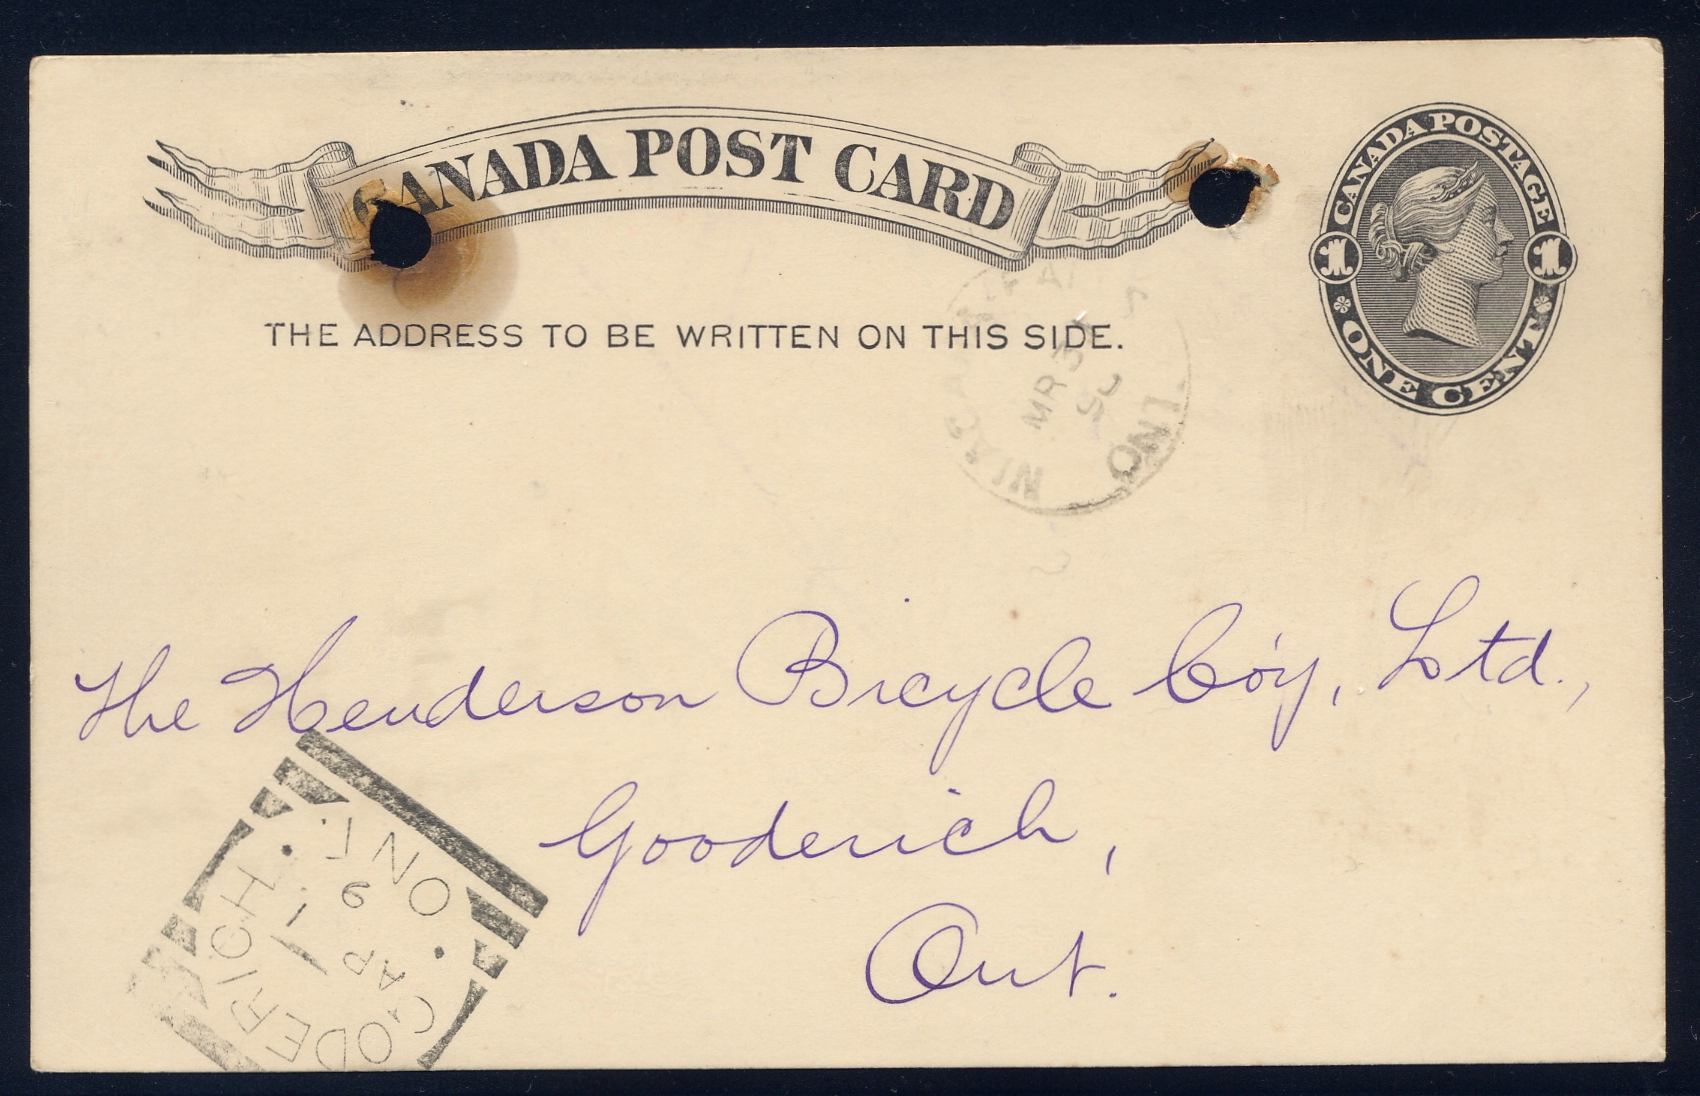 CANADA POST CARD
CANADA POSTAGE
1 1
ONE CENT
THE ADDRESS TO BE WRITTEN ON THIS SIDE.
MR 3
ONT
The Henderson Bicycle Co'y, Ltd.,
Gooderich,
Ont.
GODERICH. ONT.
AP 1